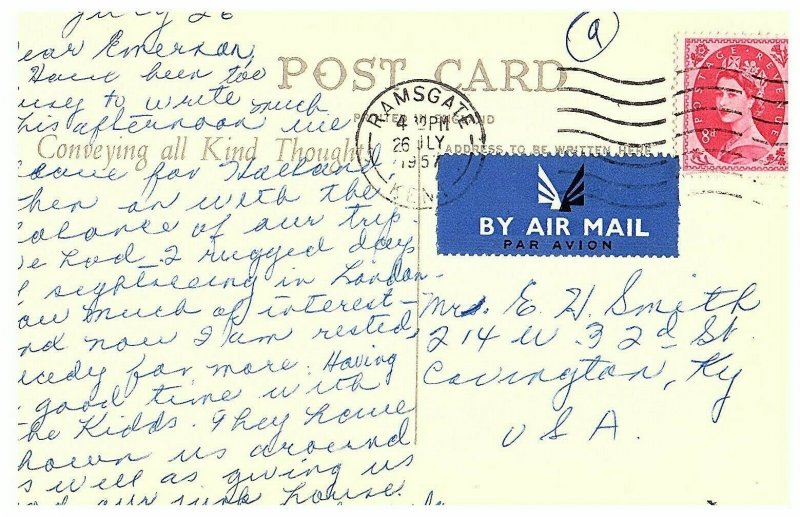 July 26
ear Emerson,
Have been too
usy to write much
his afternoon we
eave for Holland
hen on with the
alance of our trip
e had 2 rugged days
sightseeing in London.
ow much of interest -
nd now I am rested,
eady for more. Having
good time with
he Kidds. They have
hown us around
s well as giving us
our house.
POST CARD
PRINTED IN ENGLAND
Conveying all Kind Thoughts
ADDRESS TO BE WRITTEN HERE
9
RAMSGATE
4 PM
26 JLY
1957
KENT
POSTAGE REVENUE
8d
BY AIR MAIL
PAR AVION
Mrs. E. H. Smith
214 W. 32d St.
Covington, Ky
U S A.